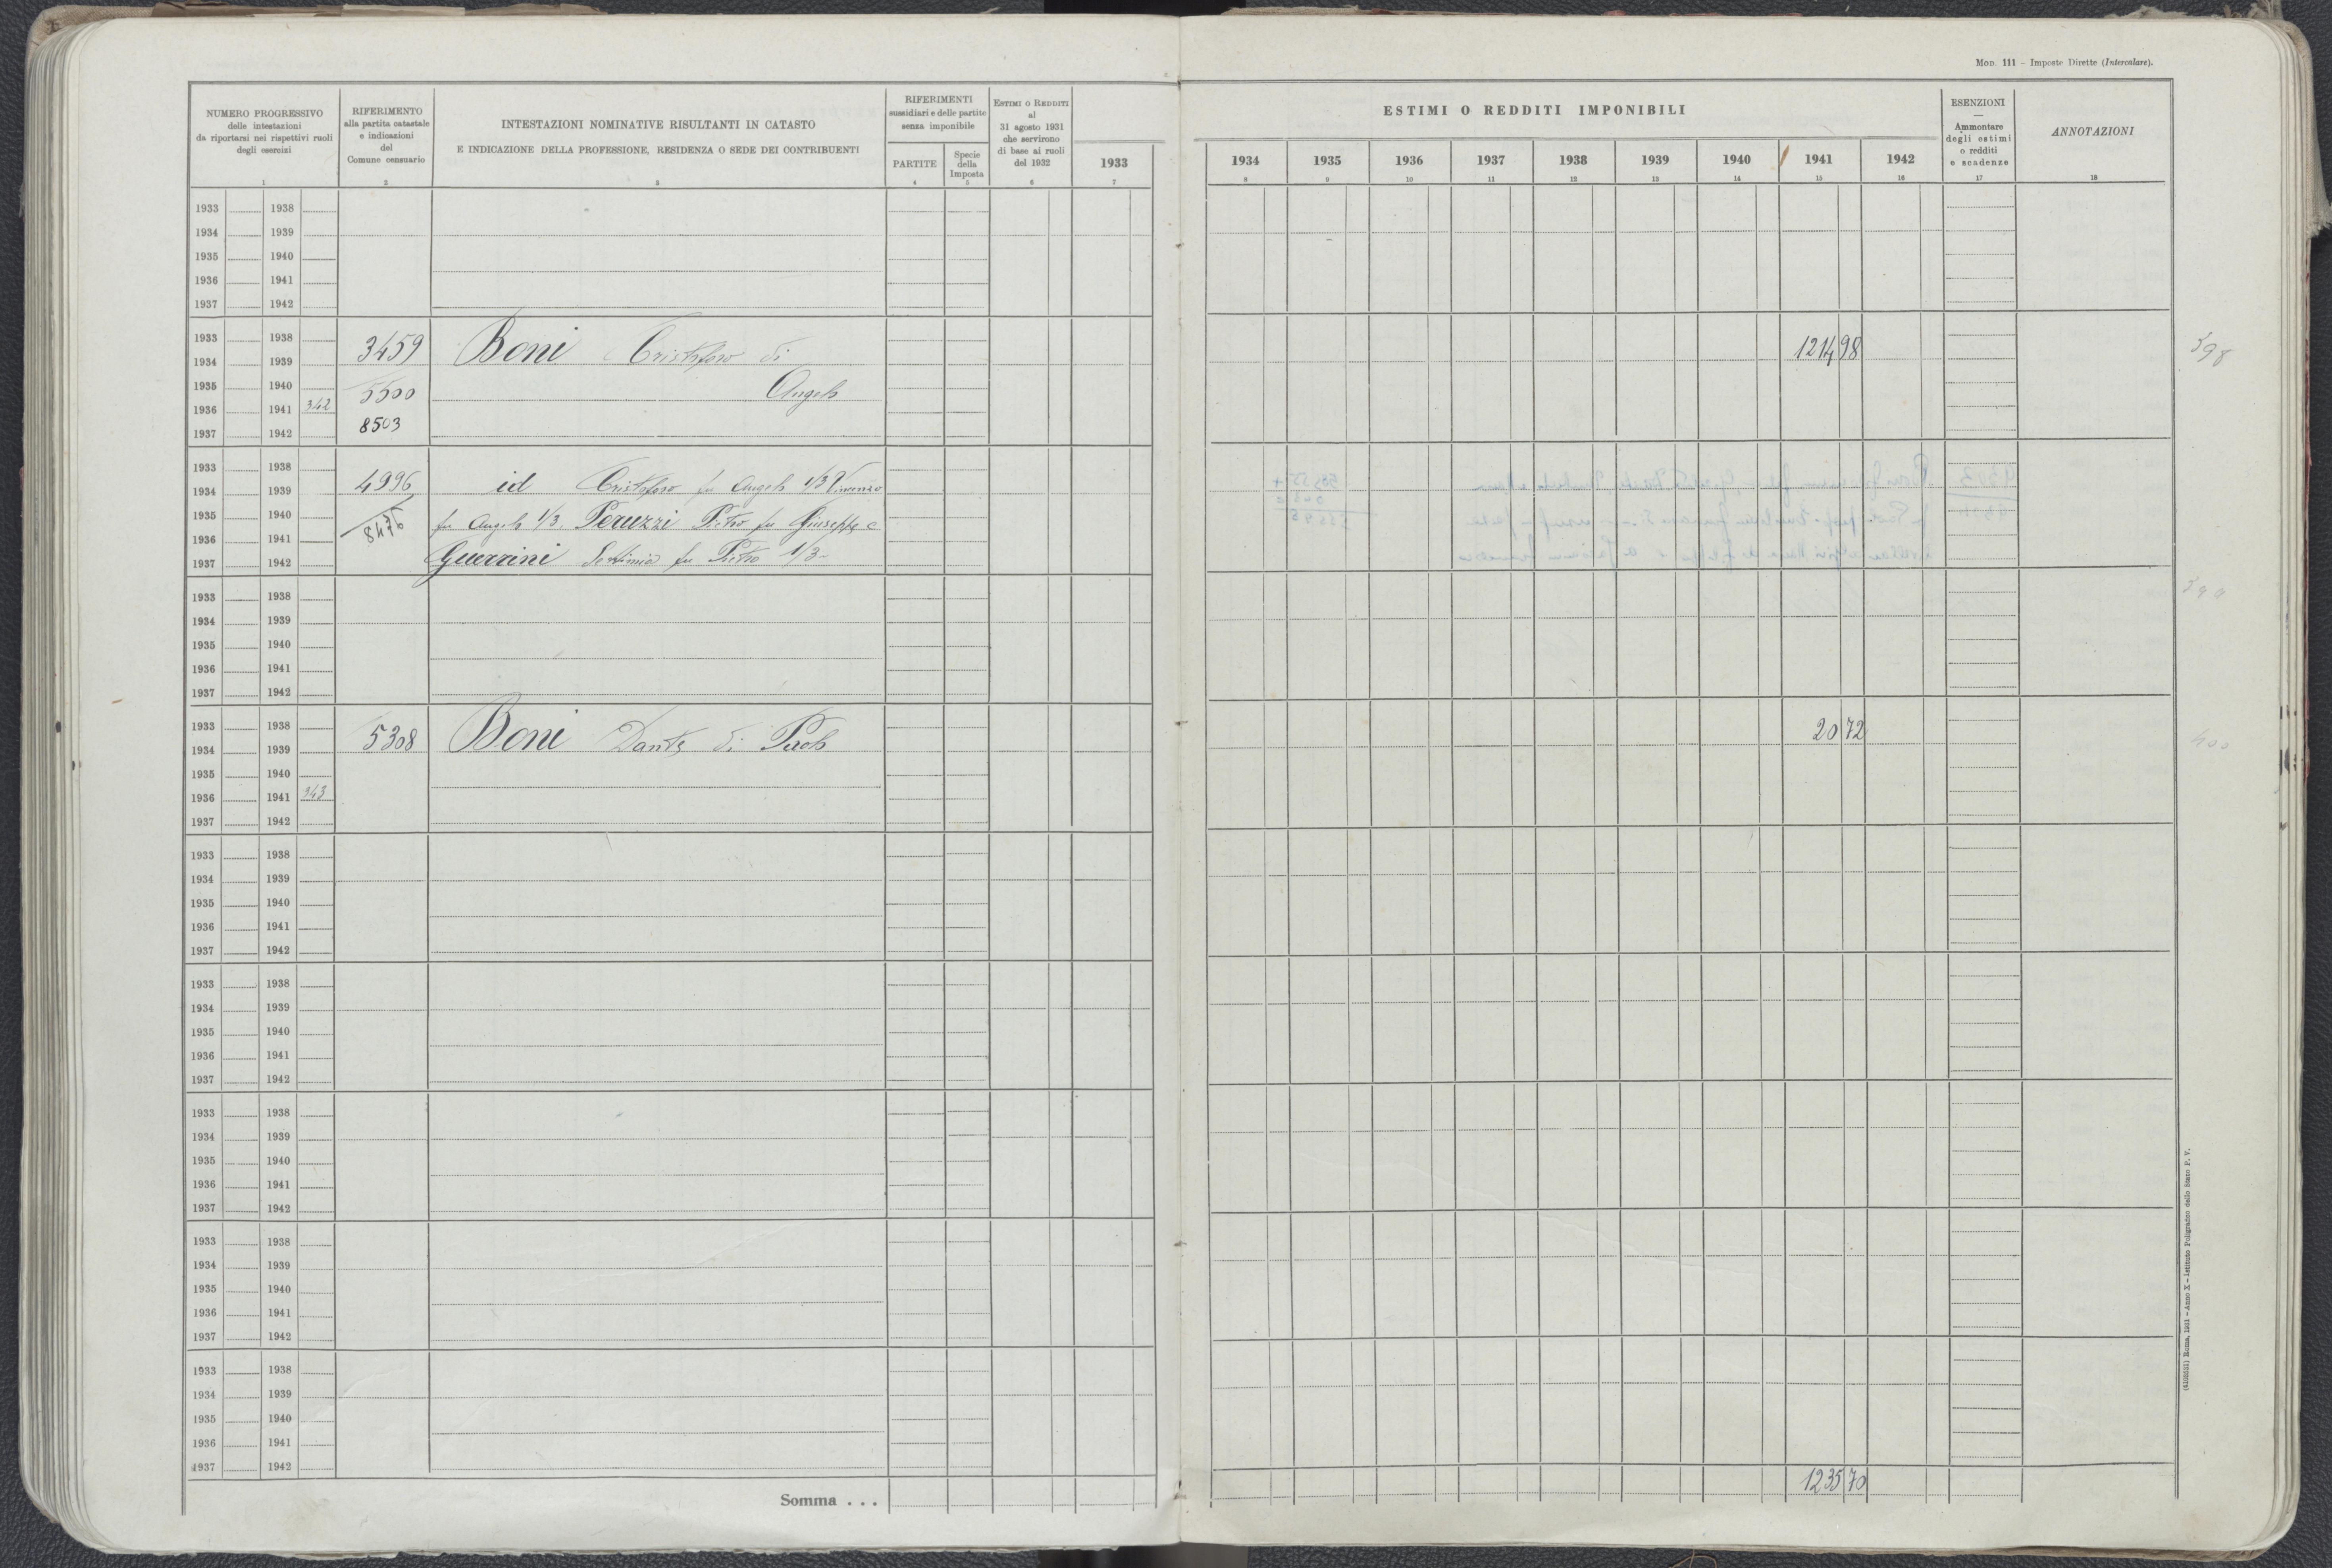 Mod. 111 – Imposte Dirette (Intercalare).
NUMERO PROGRESSIVO
delle intestazioni
da riportarsi nei rispettivi ruoli
degli esercizi
1
RIFERIMENTO
alla partita catastale
e indicazioni
del
Comune censuario
2
INTESTAZIONI NOMINATIVE RISULTANTI IN CATASTO
E INDICAZIONE DELLA PROFESSIONE, RESIDENZA O SEDE DEI CONTRIBUENTI
3
RIFERIMENTI
sussidiari e delle partite
senza imponibile
PARTITE
4
Specie
della
Imposta
5
Estimi o Redditi
al
31 agosto 1931
che servirono
di base ai ruoli
del 1932
6
1933
7
ESTIMI O REDDITI IMPONIBILI
1934 1935 1936 1937 1938 1939 1940 1941 1942
8 9 10 11 12 13 14 15 16
ESENZIONI
—
Ammontare
degli estimi
o redditi
e scadenze
17
ANNOTAZIONI
18
1933 1938
1934 1939
1935 1940
1936 1941
1937 1942
1933 1938
1934 1939 3459 Boni Cristoforo di 1214 98 398
1935 1940 5500 Angelo
1936 1941 342
1937 1942 8503
1933 1938
1934 1939 4996 id Cristoforo fu Angelo 1/3 Vincenzo
1935 1940 8476 fu Angelo 1/3. Peruzzi Pietro fu Giuseppe e
1936 1941
1937 1942 Guerrini Settimia fu Pietro 1/3
1933 1938 399
1934 1939
1935 1940
1936 1941
1937 1942
1933 1938
1934 1939 5308 Boni Dante di Paolo 20 72 400
1935 1940
1936 1941 343
1937 1942
1933 1938
1934 1939
1935 1940
1936 1941
1937 1942
1933 1938
1934 1939
1935 1940
1936 1941
1937 1942
1933 1938
1934 1939
1935 1940
1936 1941
1937 1942
1933 1938
1934 1939
1935 1940
1936 1941
1937 1942
1933 1938
1934 1939
1935 1940
1936 1941
1937 1942
Somma . . . 1235 70